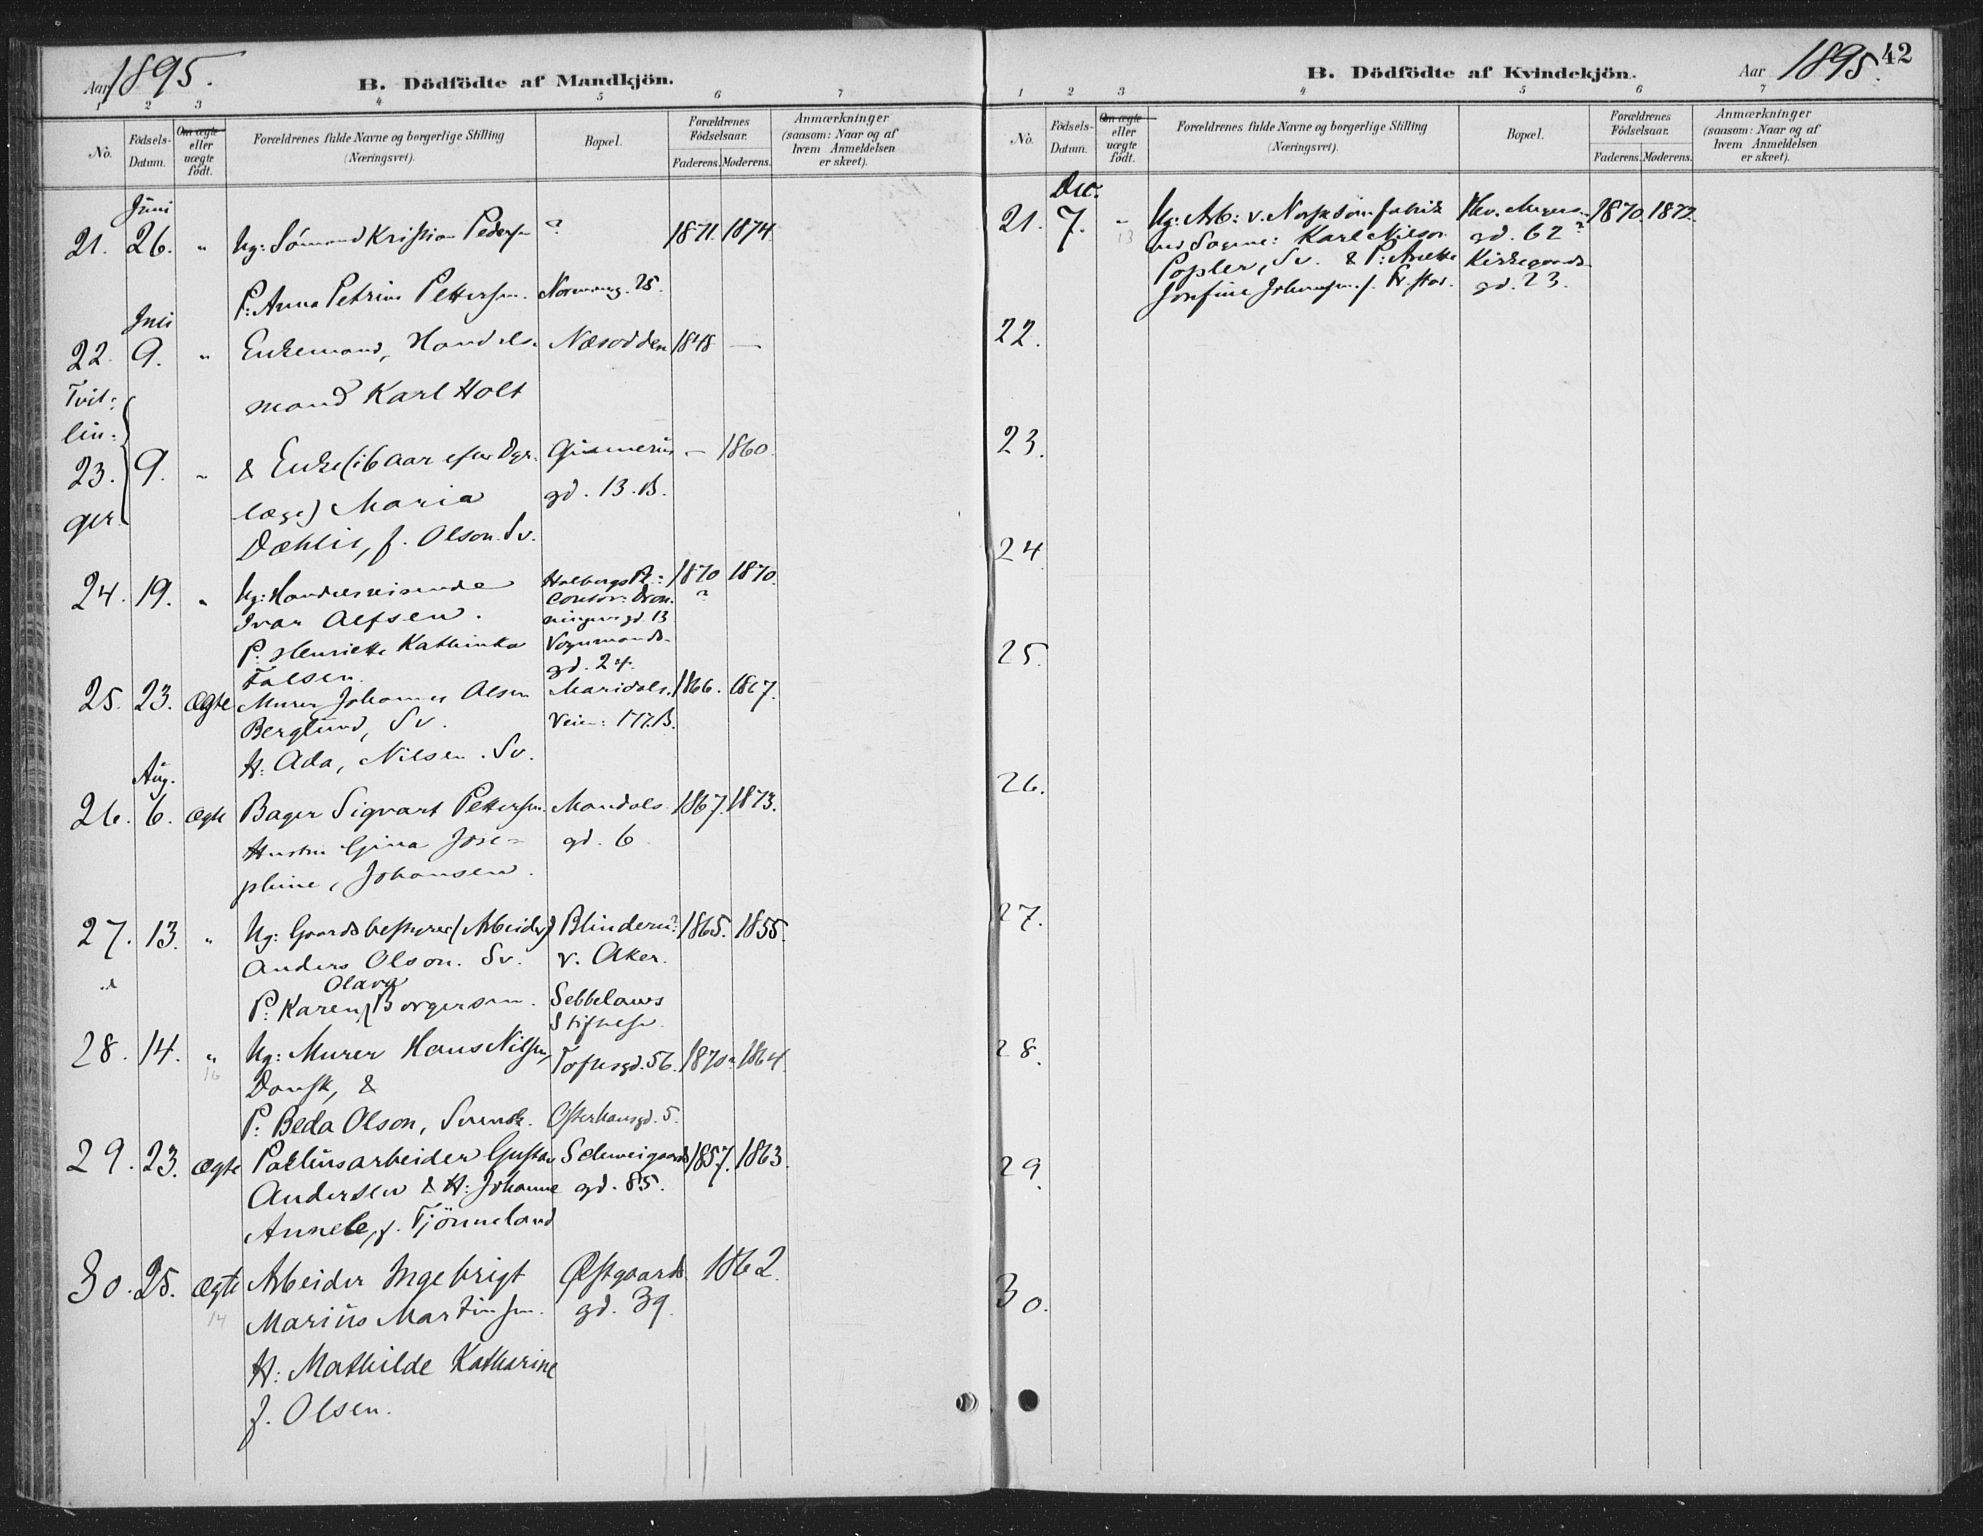 Aar 1895.
B. Dödfödte af Mandkjön.
1 2 3 4 5 6 7
No. Födsels-Datum. Om ægte eller uægte födt. Forældrenes fulde Navne og borgerlige Stilling (Næringsvei). Bopæl. Forældrenes Födselsaar. Faderens. Moderens. Anmærkninger (saasom: Naar og af hvem Anmeldelsen er skeet).
Juni
21. 26. " Ug: Sømand Kristian Pedersen ? 1871. 1874.
P: Anna Petrine Pettersen. Normansg. 25.
Juli
22. 9. " Enkemand, Handels- Næsodden 1848 —
Tvil- mand Karl Holt
lin-
23. 9. " & Enke (i 6 Aar efter Dyr- — 1860.
ger læge) Maria gd. 13.B.
Dæhlie, f. Olson. Sv.
24. 19. " Ug: Handelsreisende Holbergs Pl: 1870 1870.
Ivar Alfsen. Contor: Dron- ?
ningensgd. 13
P: Henriette Kathinka Vognmands-
Falsen. gd. 24.
25. 23. Ægte Murer Johannes Olsen Maridals- 1866. 1867.
Berglund, Sv. Veien: 177.B.
H: Ada, Nilsen. Sv.
Aug.
26. 6. Ægte Bager Sigvart Pettersen. Mandals- 1867. 1873.
Hustru Gina Jose- gd. 6
phine, Johansen.
27. 13. " Ug: Gaardsbestyrer (Arbeider) Blindern? 1865. 1855.
Anders Olson. Sv. v. Aker.
Olava
P: Karen Borgersen. Sebbelows
Stiftelse.
28. 14. " Ug: Murer Hans Nilsen, Toftesgd. 56. 1870? 1864.
16
Dansk, &
P: Beda Olson, Svensk. Osterhausgd. 5.
29. 23. Ægte Pakhusarbeider Gustav Schweigaards 1857. 1863.
Andersen & H: Johanne gd. 85.
f. Tjönneland
30. 25. Ægte Arbeider Ingebrigt Østgaards 1862.
14 Marius Martinsen. gd. 39.
H: Mathilde Katharine
f. Olsen.
B. Dödfödte af Kvindekjön. Aar 1895. 42
1 2 3 4 5 6 7
No. Födsels-Datum. Om ægte eller uægte födt. Forældrenes fulde Navne og borgerlige Stilling (Næringsvei). Bopæl. Forældrenes Födselsaar. Faderens. Moderens. Anmærkninger (saasom: Naar og af hvem Anmeldelsen er skeet).
Dec.
21. 7. " Ug: Arb: v. Norsk Sömfabrik Thv. Meyers- 1870. 1872.
13
ved Sagene: Karl Nilson gd. 62?
Popler, Sv. & P: Anette Kirkegaards-
Josefine Johansen, f. Fr.stad. gd. 23.
22.
23.
24.
25.
26.
27.
28.
29.
30.